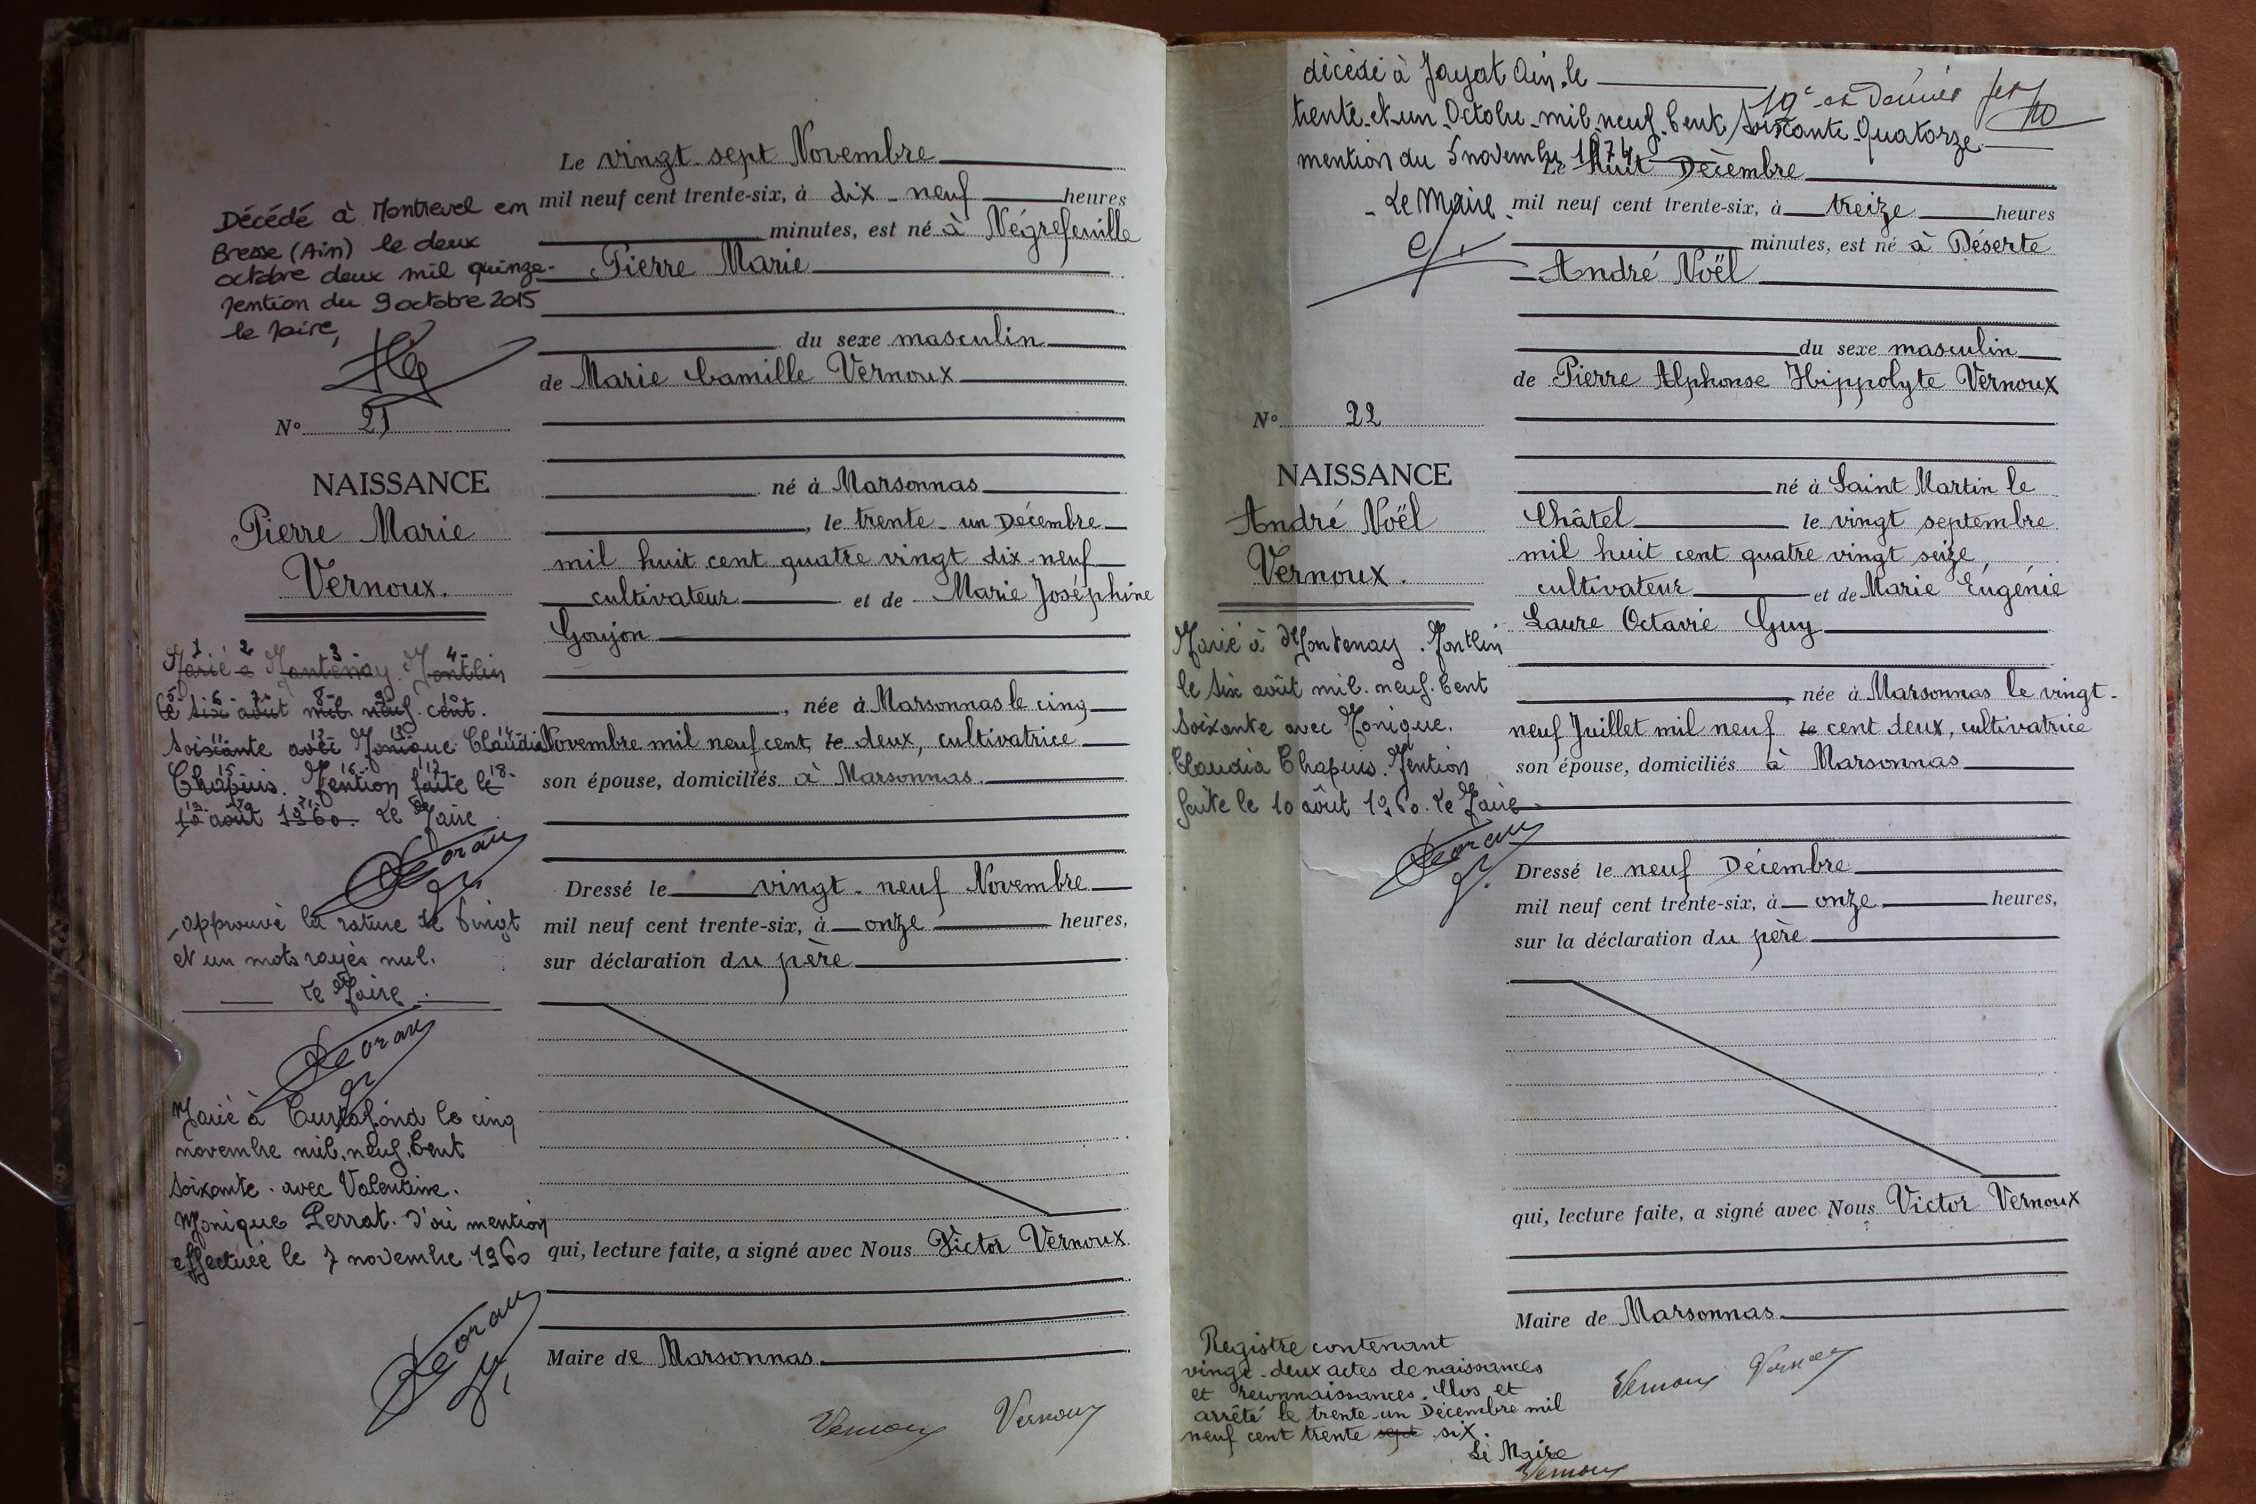 Décédé à Montrevel en
Bresse (Ain) le deux
octobre deux mil quinze.
Mention du 9 octobre 2015
le Maire,
N° 21
NAISSANCE
Pierre Marie
Vernoux.
1 2 3 4
Marié à Mantenay. Montlin
5 6 7 8 9 10
le six août mil neuf cent.
11 12 13 14
soixante avec Monique Claudia
15 16 17 18
Chapuis. Mention faite le
19 20 21
10 août 1960. Le Maire
approuvé la rature de vingt
et un mots rayés nul.
Le Maire.
Marié à Curtafond le cinq
novembre mil. neuf. Cent
soixante. avec Valentine.
Monique Perrat. D'où mention
effectuée le 7 novembre 1960
Le vingt-sept Novembre
mil neuf cent trente-six, à dix-neuf heures
minutes, est né à Négrefeuille
Pierre Marie
du sexe masculin
de Marie Camille Vernoux
né à Marsonnas
, le trente-un Décembre
mil huit cent quatre vingt dix-neuf
cultivateur et de Marie Joséphine
Goujon
, née à Marsonnas le cinq
Novembre mil neuf cent, le deux, cultivatrice
son épouse, domiciliés à Marsonnas
Dressé le vingt-neuf Novembre
mil neuf cent trente-six, à onze heures,
sur déclaration du père
qui, lecture faite, a signé avec Nous Victor Vernoux
Maire de Marsonnas
Vernoux Vernoux
décédé à Jayat Ain. le
trente-et-un-Octobre-mil-neuf-Cent Soixante-Quatorze
mention du 5 novembre 1974
- Le Maire -
19e et dernier
N° 22
NAISSANCE
André Noël
Vernoux.
Marié à Montenay. Montlin
le six août mil. neuf. Cent
soixante avec Monique.
Claudia Chapuis. Mention
faite le 10 août 1960. Le Maire
Le huit Décembre
mil neuf cent trente-six, à treize heures
minutes, est né à Déserte
André Noël
du sexe masculin
de Pierre Alphonse Hippolyte Vernoux
né à Saint Martin le
Châtel le vingt septembre
mil huit cent quatre vingt seize,
cultivateur et de Marie Eugénie
Laure Octavie Guy
, née à Marsonnas le vingt-
neuf Juillet mil neuf le cent deux, cultivatrice
son épouse, domiciliés à Marsonnas
Dressé le neuf Décembre
mil neuf cent trente-six, à onze heures,
sur la déclaration du père
qui, lecture faite, a signé avec Nous Victor Vernoux
Maire de Marsonnas
Vernoux Vernoux
Registre contenant
vingt-deux actes de naissances
et reconnaissances. Clos et
arrêté le trente-un Décembre mil
neuf cent trente sept six.
Le Maire
Vernoux